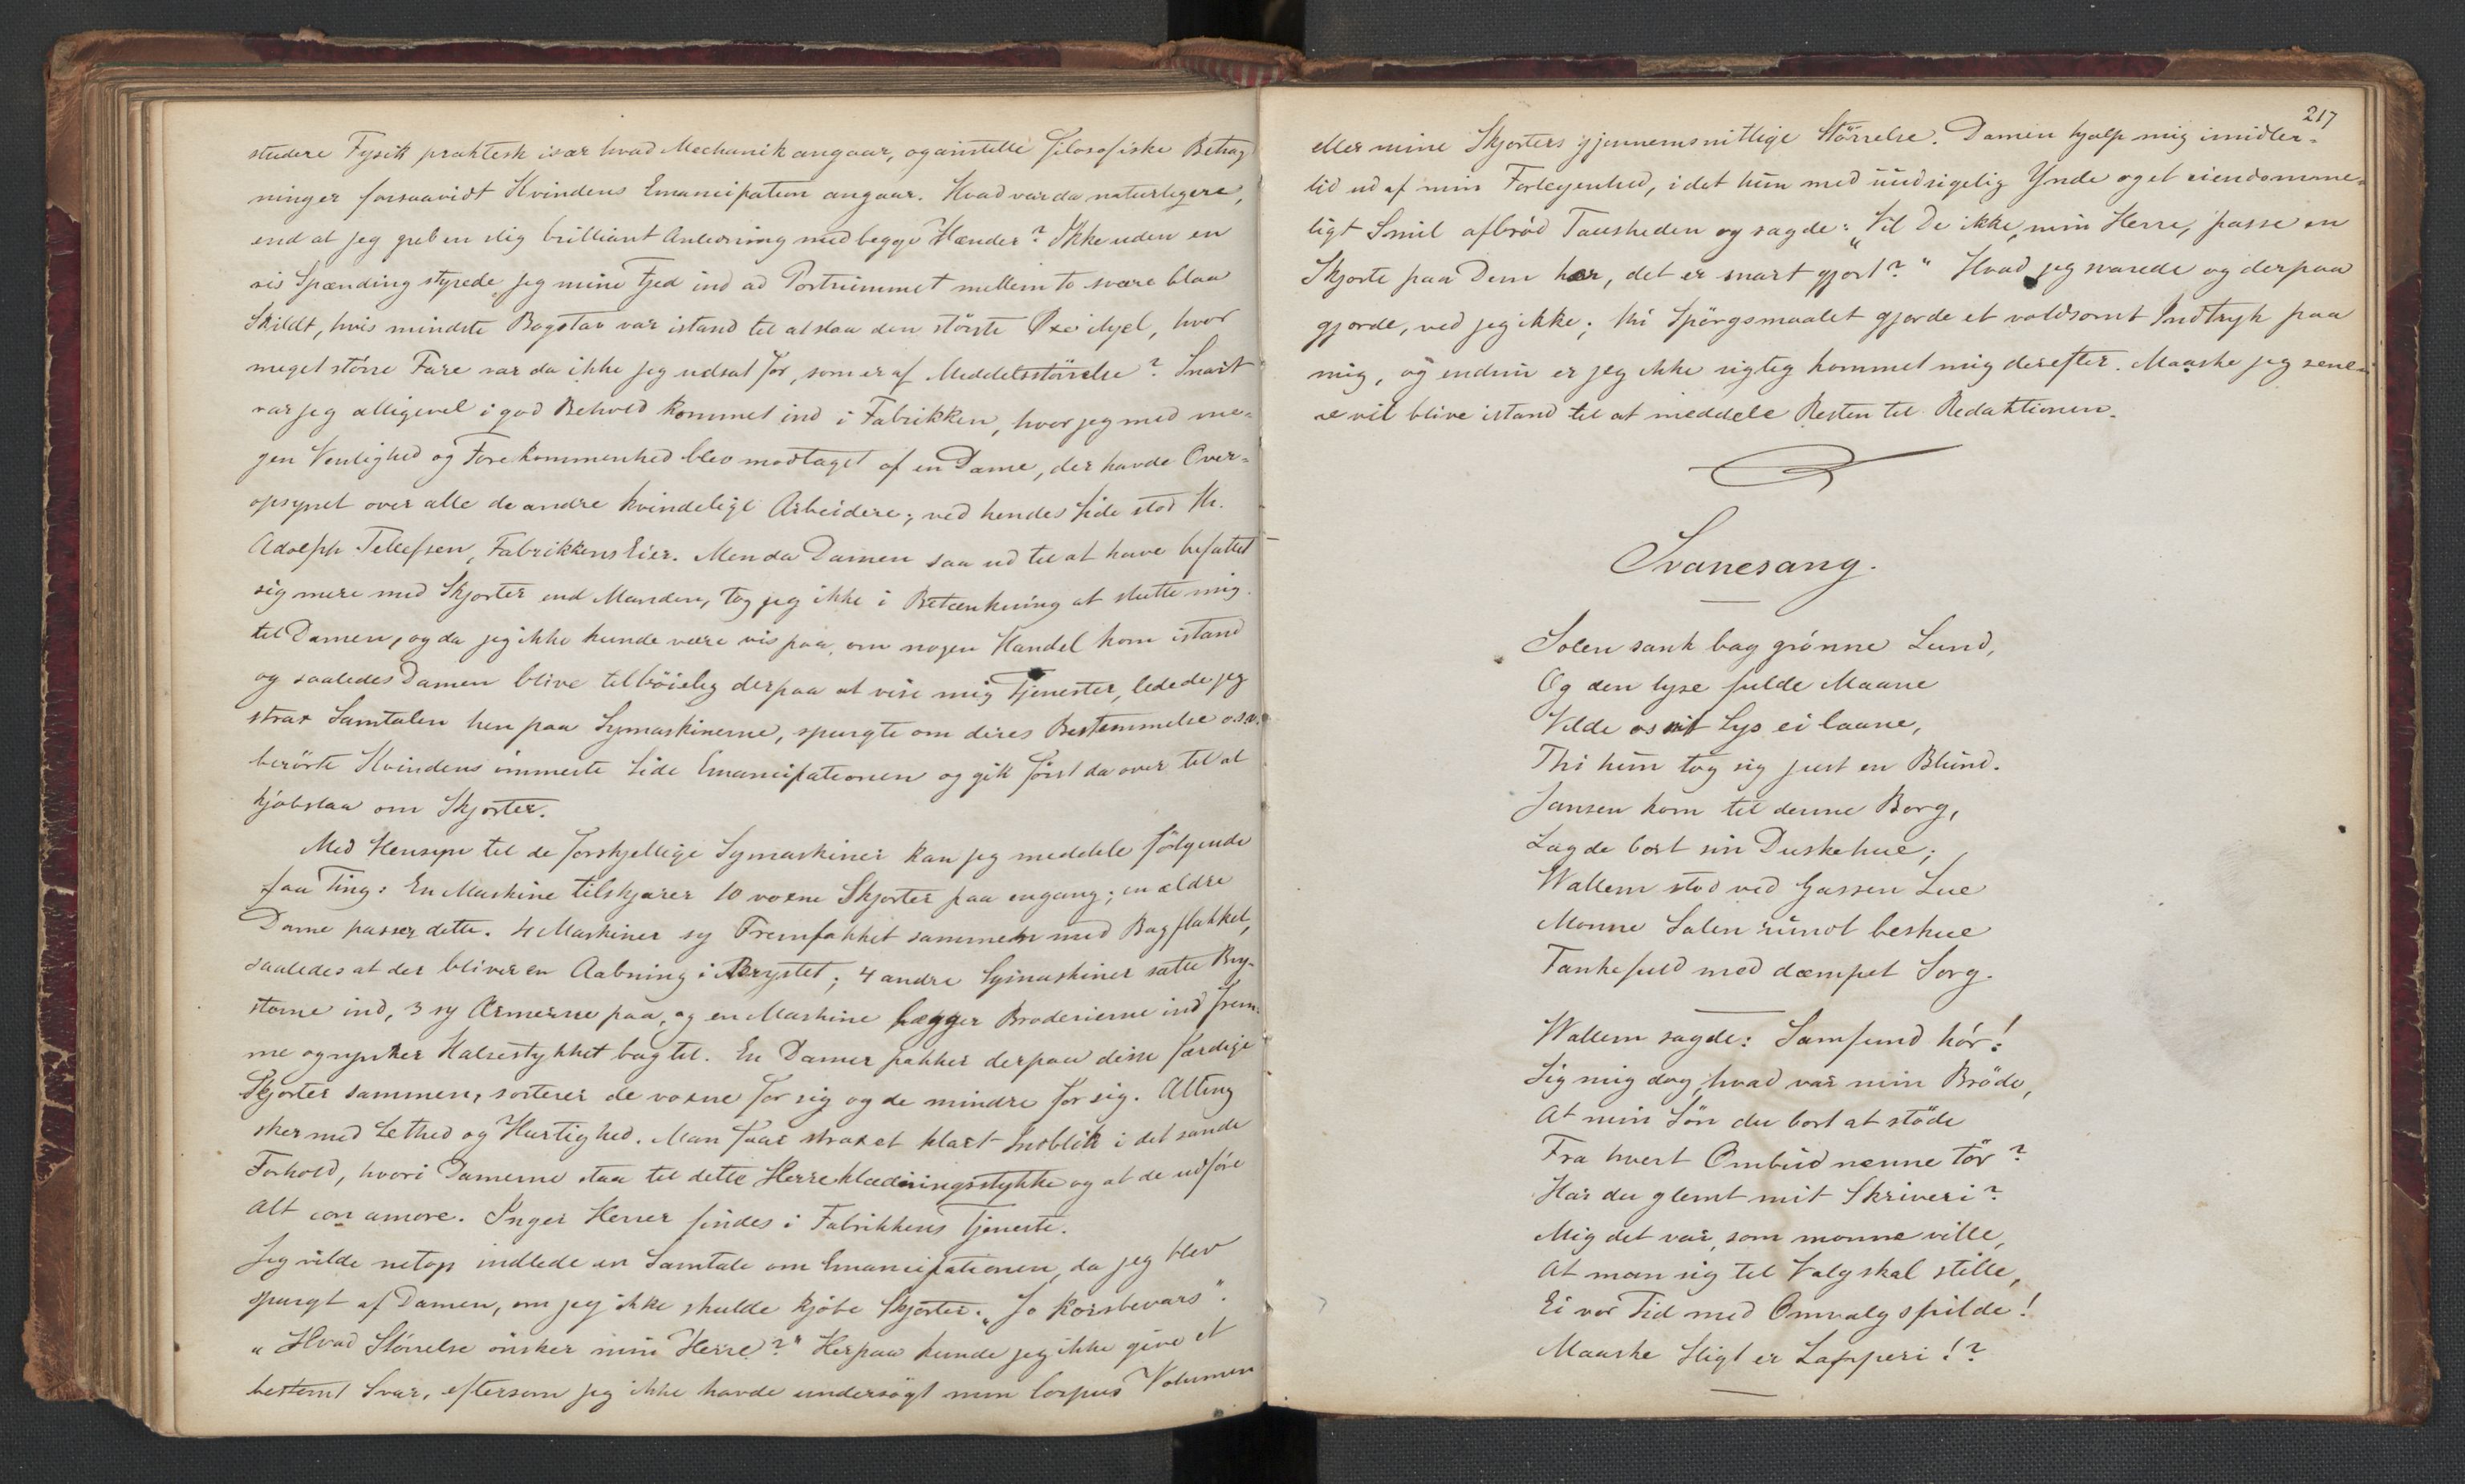 studere Fysik praktisk især hvad Mechanik angaar, og anstille filosofiske Betrag
ninger forsaavidt Kvindens Emancipation angaar. Hvad var da naturligere,
end at jeg greb en slig brilliant Anledning med begge Hænder? Ikke uden en
vis Spænding styrede jeg mine Fjed ind ad Portrummet mellem to svære blaa
Skildt, hvis mindste Bogstav var istand til at slaa den störste Oxe ihjel, hvor
meget större Fare var da ikke jeg udsat for, som er af Middelsstörrelse? Snart
var jeg alligevel i god Behold kommet ind i Fabrikken, hvor jeg med me=
gen Venlighed og Forekommenhed blev modtaget af en Dame, der havde Over=
opsynet over alle de andre kvindelige Arbeidere; ved hendes Side stod Hr.
Adolph Tellefsen, Fabrikkens Eier. Men da Damen saa ud til at have befattet
sig mere med Skjorter end Manden, tog jeg ikke i Betænkning at slutte mig
til Damen, og da jeg ikke kunde være vis paa, om nogen Handel kom istand
og saaledes Damen blive tilböielig derpaa at vise mig Tjenester, ledede jeg
strax Samtalen hen paa Symaskinerne, spurgte om deres Bestemmelse o.s.v.
berörte Kvindens ömmeste Side Emancipationen og gik först da over til at
kjöbslaa om Skjorter.
Med Hensyn til de forskjellige Symaskiner kan jeg meddele fölgende
faa Ting: En Maskine tilskjærer 10 voxne Skjorter paa engang; en ældre
Dame passer dette. 4 Maskiner sy Fremflakket sammen med Bagflakket,
saaledes at der bliver en Aabning i Brystet; 4 andre Symaskiner sætte Bry-
sterne ind, 3 sy Ærmerne paa, og en Maskine lægger Broderierne ind frem-
me og rynker Halsestykket bagtil. En Dame pakker derpaa disse færdige
Skjorter sammen, sorterer de voxne for sig og de mindre for sig. Alting
sker med Lethed og Hurtighed. Man faar strax et klart Indblik i det sande
Forhold, hvori Damerne staa til dette Herreklædningsstykke og at de udföre
Alt con amore. Ingen Herrer findes i Fabrikkens Tjeneste.
Jeg vilde netop indlede en Samtale om Emancipationen, da jeg blev
spurgt af Damen, om jeg ikke skulde kjöbe Skjorter. "Jo korsbevars".
"Hvad Störrelse önsker min Herre?" Herpaa kunde jeg ikke give et
bestemt Svar, eftersom jeg ikke havde undersögt min Corpus Volumen
217
eller mine Skjorters gjennemsnitlige Störrelse. Damen hjalp mig imidler=
tid ud af min Forlegenhed, idet hun med uudsigelig Ynde og et eiendomme=
ligt Smil afbröd Tausheden og sagde: "Vil De ikke, min Herre, passe en
Skjorte paa Dem her, det er snart gjort?" Hvad jeg svarede og derpaa
gjorde, ved jeg ikke; thi Spörgsmaalet gjorde et voldsomt Indtryk paa
mig, og endnu er jeg ikke rigtig kommet mig derefter. Maaske jeg sene=
re vil blive istand til at meddele Resten til Redaktionen.
Svanesang.
Solen sank bag grönne Lund,
Og den lyse fulde Maane
Vilde os sit Lys ei laane,
Thi hun tog sig just en Blund.
Jansen kom til denne Borg,
Lagde bort sin Duskehue;
Wallem stod ved Gassen Lue
Monne Salen rundt beskue
Tankefuld med dæmpet Sorg.
Wallem sagde: Samfund hör!
Sig mig dog, hvad var min Bröde,
At min Sön du bort at stöde
Fra hvert Ombud nænne tör?
Har du glemt mit Skriveri?
Mig det var, som monne ville,
At man sig til Valg skal stille,
Ei vor Tid med Omvalg spilde!
Maaske Sligt er Lapperi!?